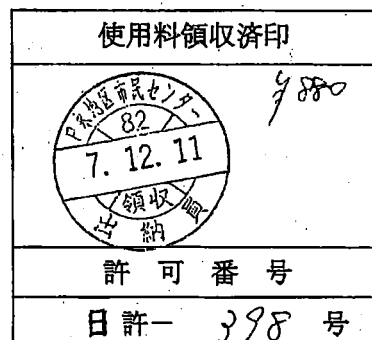 使用料領収済印
¥880
区市民センター
82
7. 12. 11
領収
出納員
許可番号
日許ー 398 号